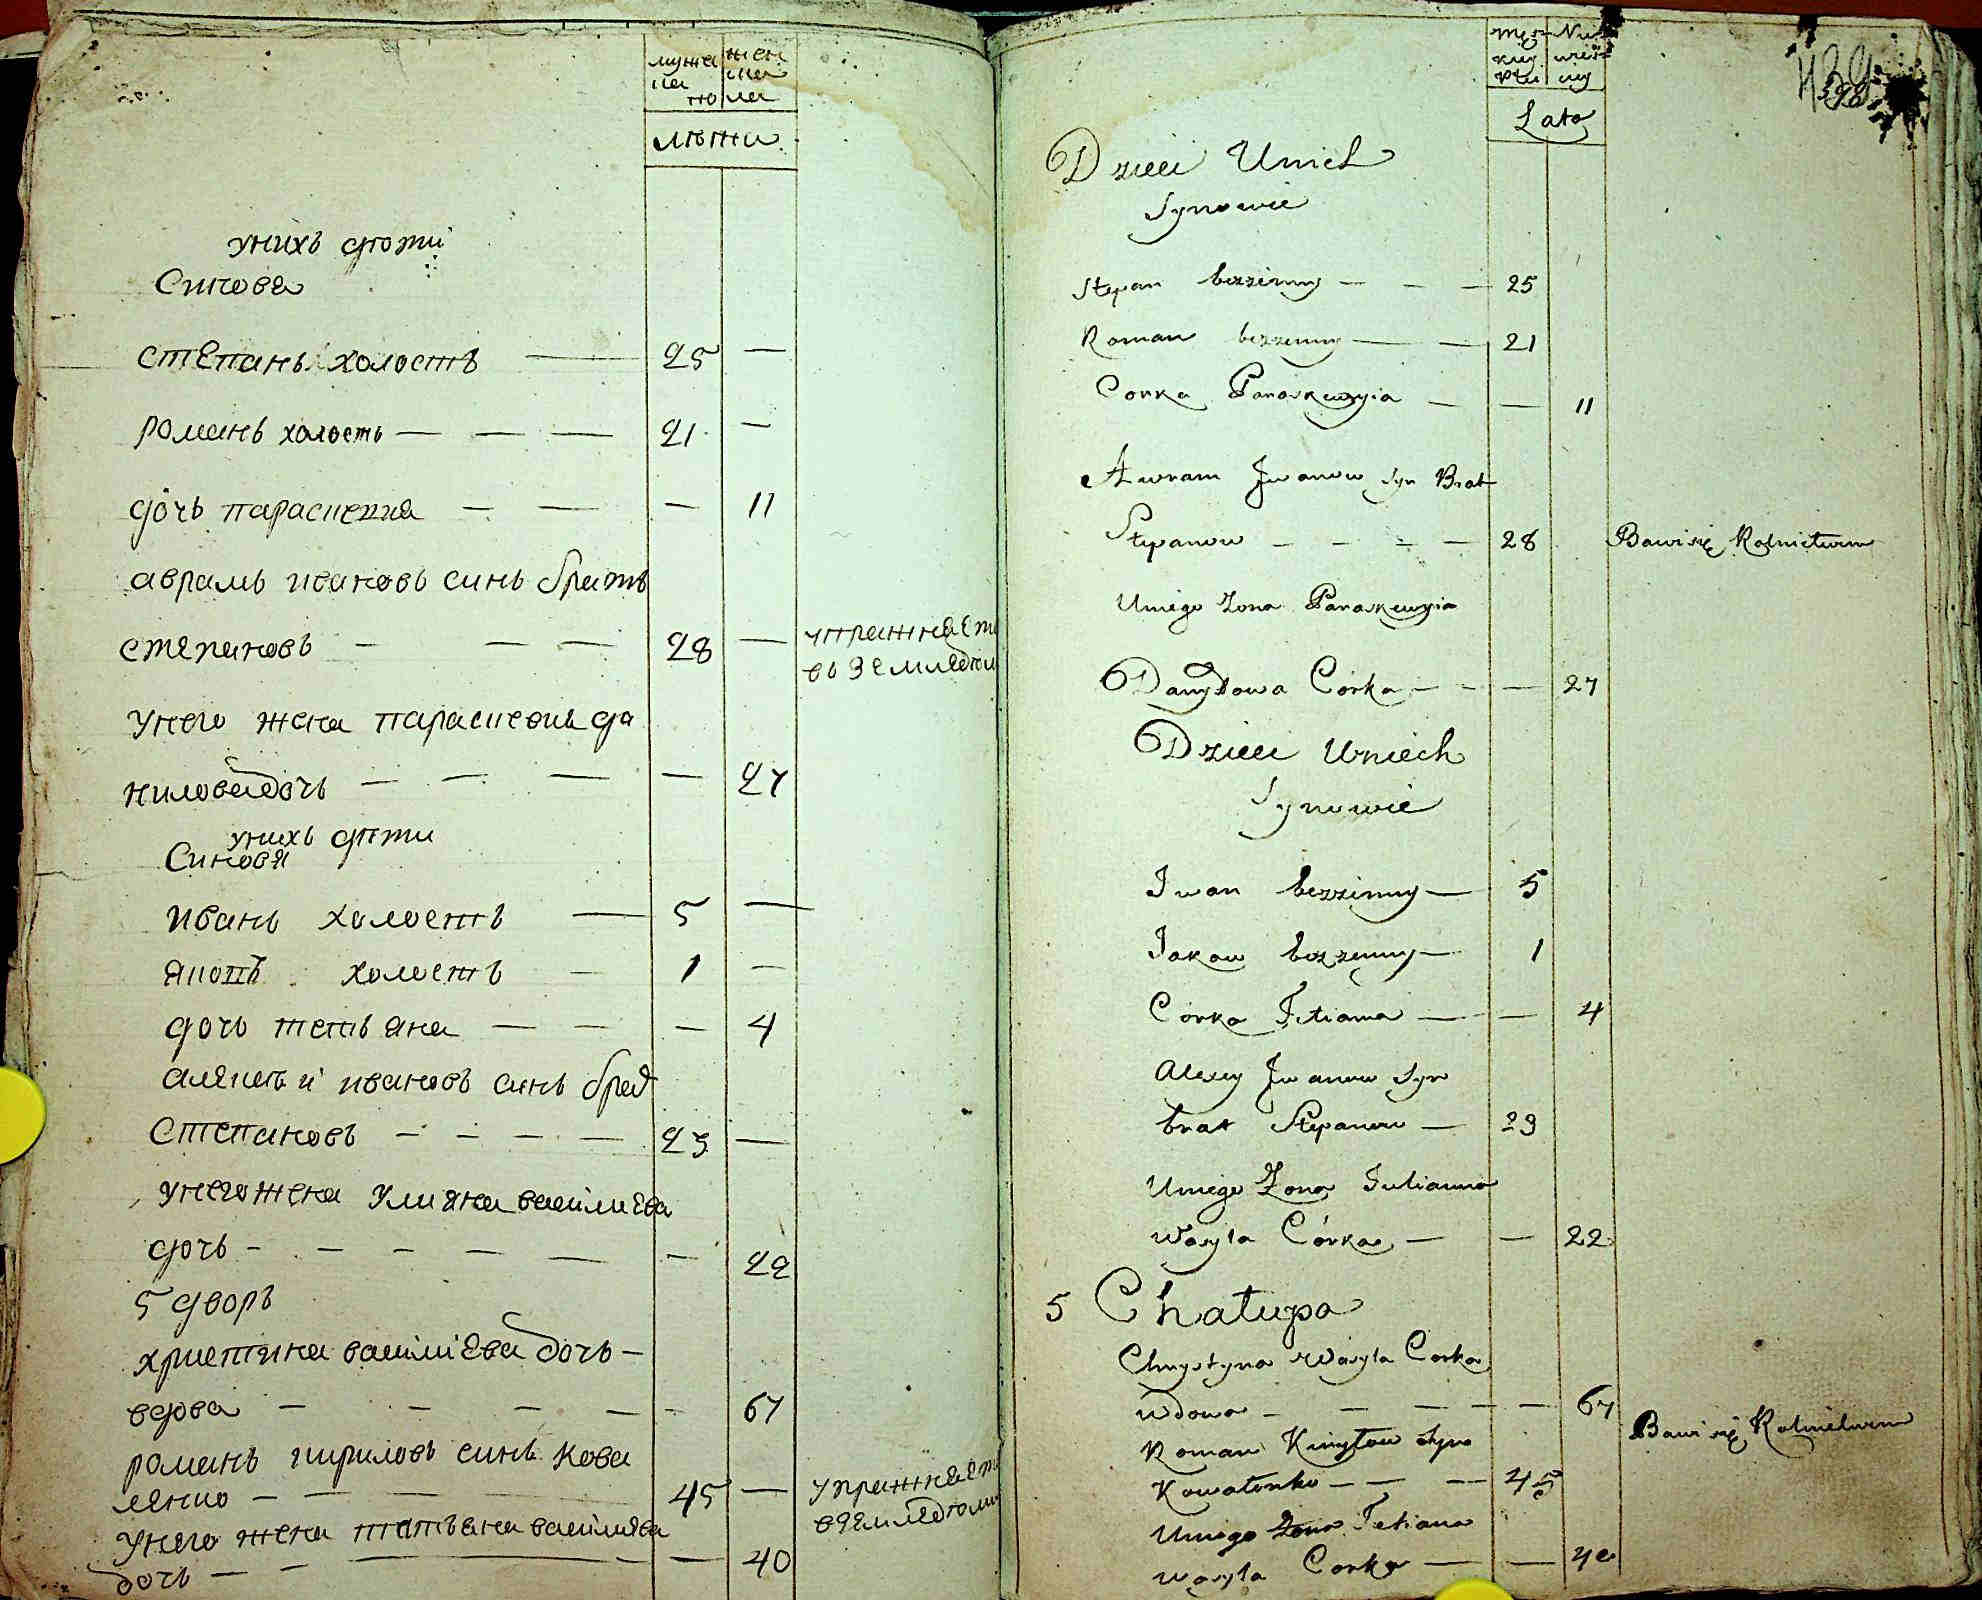 мужска жен
па ска
по ла
лѣты
унихъ дѣти
Синовя
степанъ холостъ — 25 —
романъ холостъ — — — 21 —
дочь параскевия — — — 11
аврамъ ивановъ синъ братъ
степановъ — — — 28 — упражняет
въ земледѣл
Унего жена параскевия да
нилова дочь — — — — 27
унихъ дѣти
Синовя
иванъ холостъ — 5 —
яковъ холостъ — 1 —
дочь тетъяна — — — 4
алексѣй ивановъ синъ брат
Степановъ — — — — 23 —
унего жена улияна василиева
дочь — — — — — — 22
5 дворъ
христина василиева дочь —
вдова — — — — — 67
романъ кириловъ синъ кова
ленко — — — — 45 — упражняет
въ земледѣли
Унего жена татъяна василиева
дочь — — — — 40
Męz- Nie-
kiey wies-
płci ciy
Lata
Dzieci Unich
Synowie
Stepan bezzenny — — — 25
Roman bezzenny — — 21
Corka Paraskewyia — — 11
Awram Jwanow Syn Brat
Stepanow — — — — 28 Bawi się Rolnictwem
Uniego Zona Paraskewyia
Danyłowa Córka — — — 27
Dzieci Uniech
Synowie
Iwan bezzenny — 5
Jakow bezzenny — 1
Córka Tetiana — — 4
Alexey Jwanow Syn
brat Stepanow — 23
Uniego Zona Julianna
Wasyla Córka — — 22
5 Chałupa
Chrystyna Wasyla Corka
wdowa — — — — — 67
Roman Kiryłow Syn Bawi się Rolnictwem
Kowalenko — — — 45
Uniego Zona Tetiana
Wasyla Corka — — 40